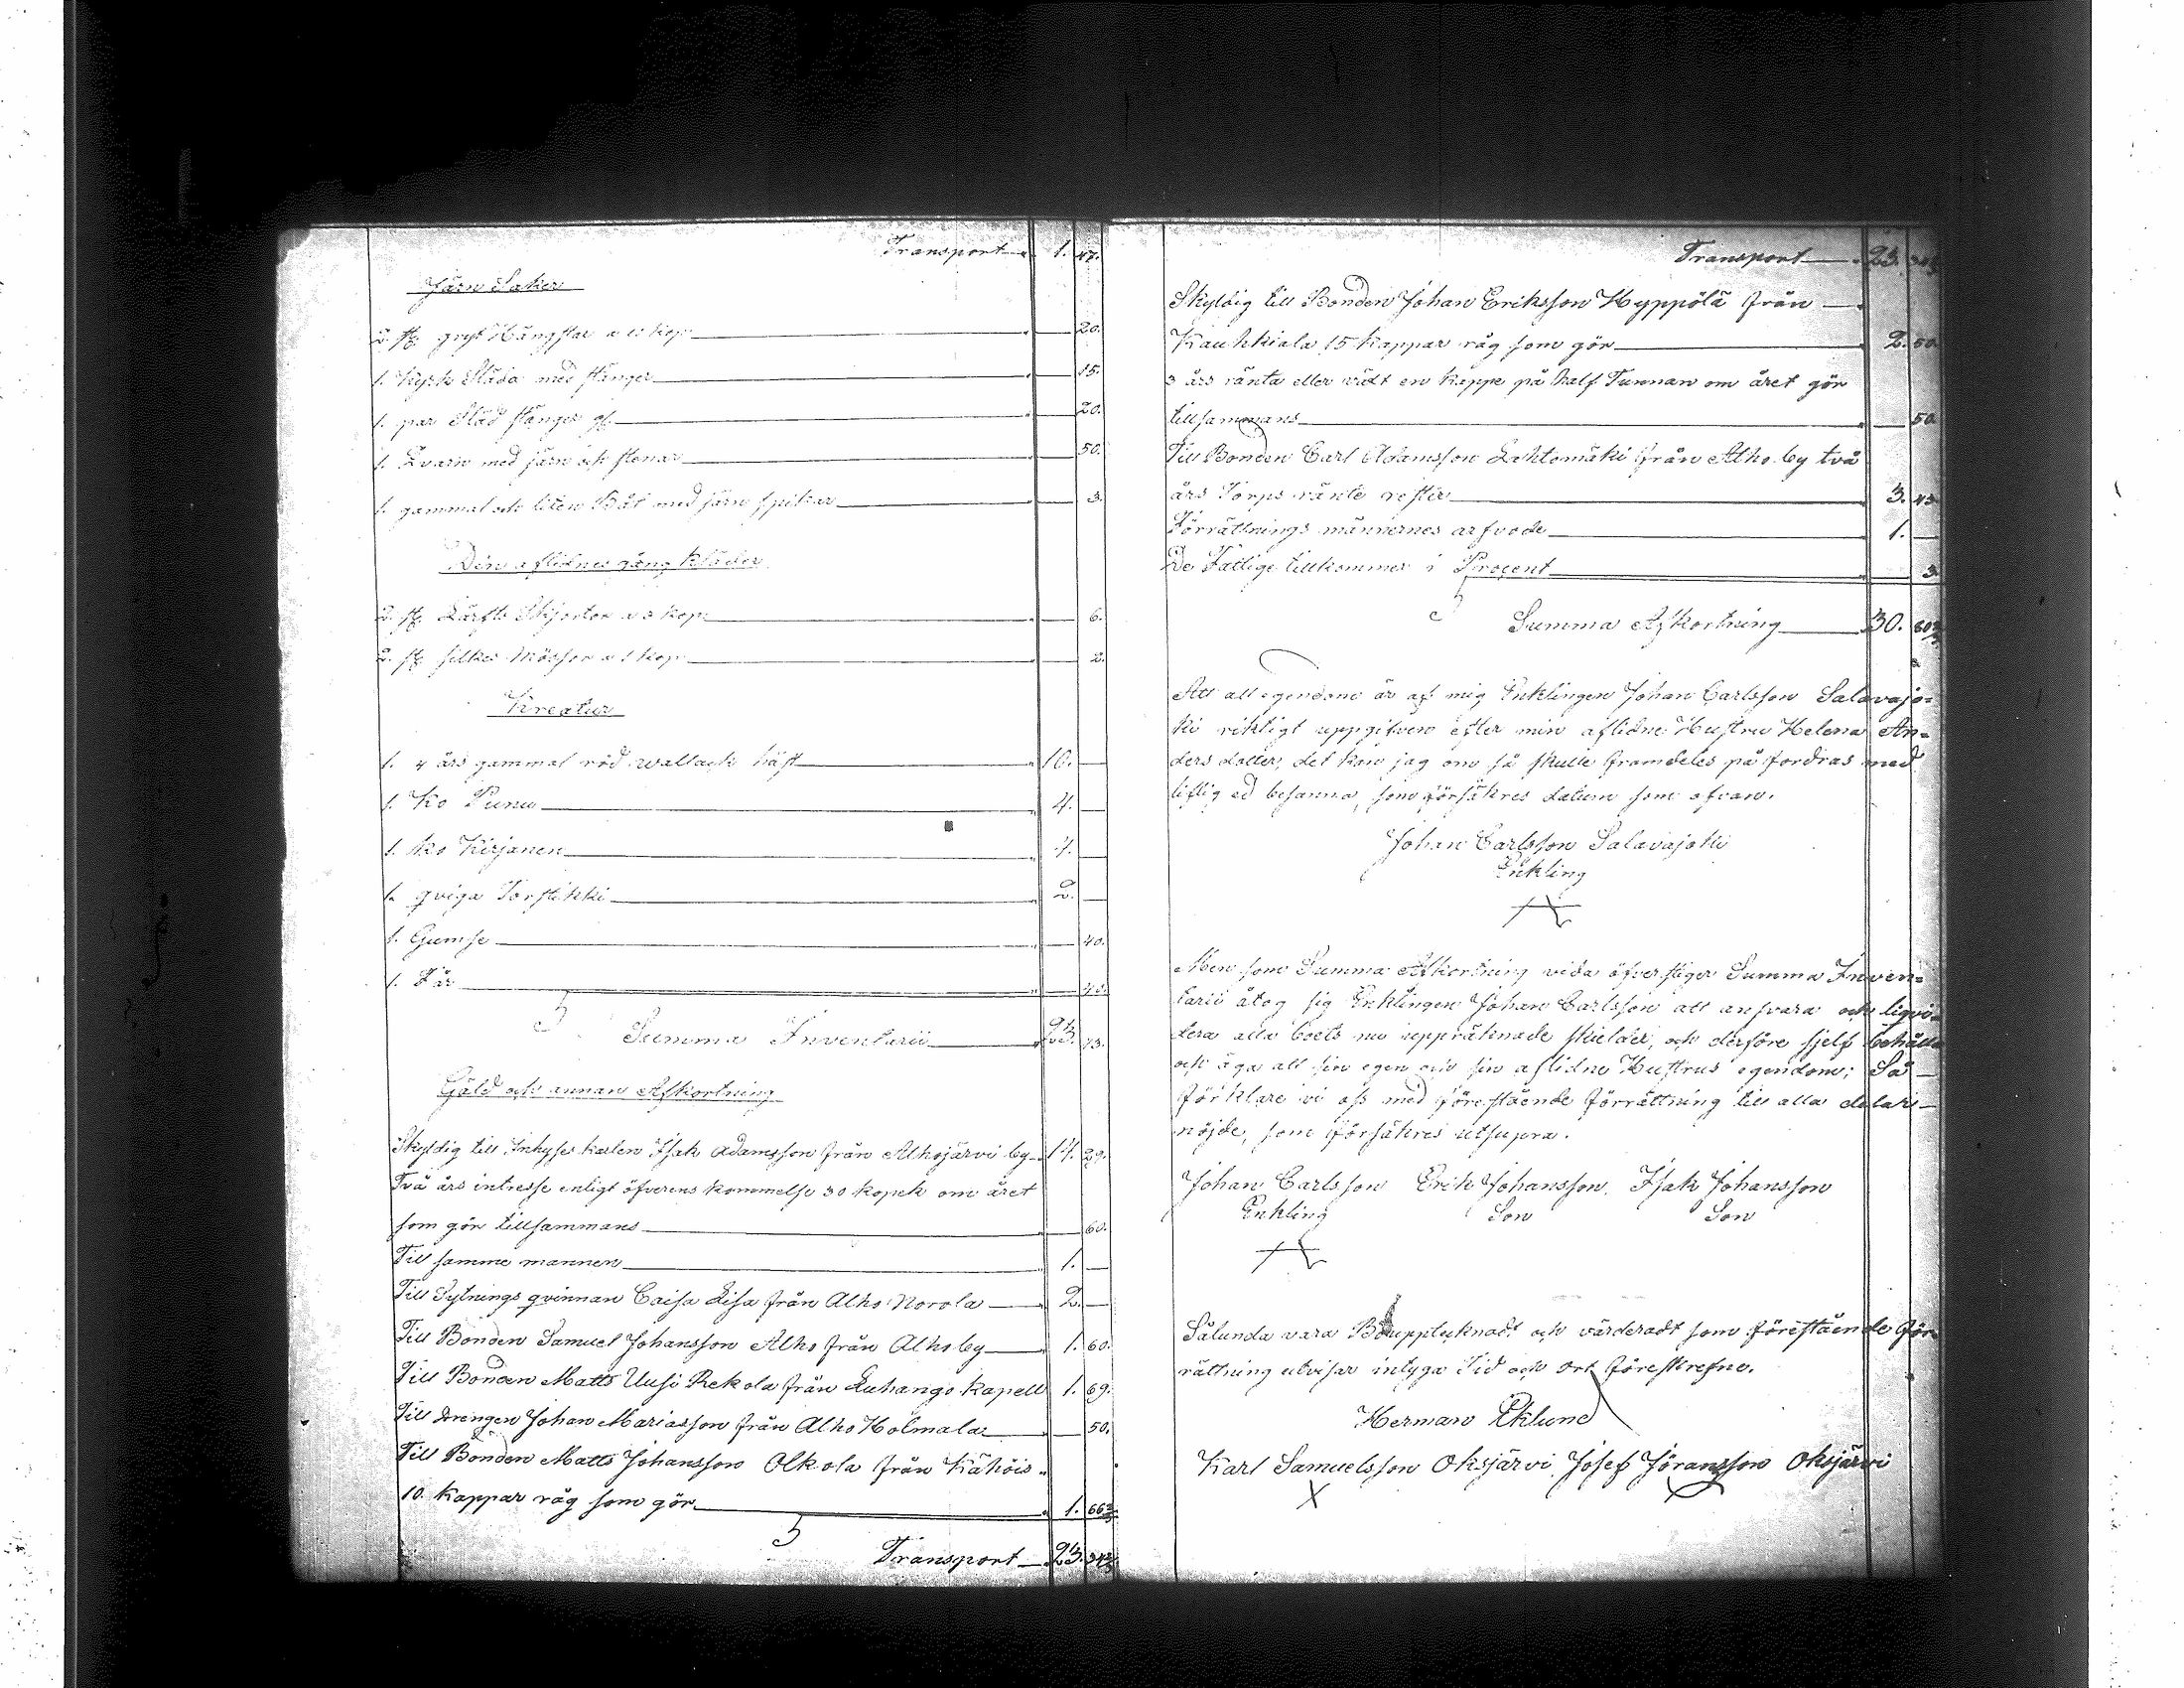 Transport 1. 47.
Järn Saker
2. st. gryt Hängslar a 10 kop. 20.
1. kyrk Släda med stänger 15.
1. par Släd stänger 20.
1. Qvarn med järn och stenar 50.
1. gammal och liten Båt med järn spikar 3.
Den aflidnes gång kläder
2. st. Lärfts Skjortor a 3 kop. 6.
2. st. silkes Mössor a 1 kop. 2.
Kreatur
1. 4 års gammal röd wallack häst 10.
1. Ko Punu 4.
1. ko Kirjanen 4.
1. qviga Torstikki 2.
1. Gumse 40.
1. Får 40.
Summa Inventarii 23. 73.
Gäld och annan Afkortning
Skyldig till Inhyses karlen Isak Adamsson från Alhojärvi by 14. 29.
Två års intresse enligt öfverens kommelse 30 kopek om året
som gör tillsammans 60.
Till samme mannen 1.
Till Sytnings qvinnan Caisa Lisa från Alho Norola 2.
Till Bonden Samuel Johansson Alho från Alho by 1. 60.
Till Bonden Matts Uusi Rekola från Luhango kapell 1. 69.
Till Drengen Johan Mariasson från Alho Holmala 50.
Till Bonden Matts Johansson Olkola från Kähöis
10. Kappar råg som gör 1. 66⅔
Transport 23. 34⅔
Transport 23. 34⅔
Skyldig till Bonden Johan Eriksson Hyppölä från
Kauhkiala 15 kappar råg som gör 2. 50.
3 års ränta eller växt en kappe på half Tunnan om året gör
tillsammans 50.
Till Bonden Carl Adamsson Lahtomäki från Alho by två
års Torps ränte restir 3. 43.
Förrättnings männernes arfvode 1.
De Fattige tillkommer i Procent 3.
Summa Afkortning 30. 80⅔
Att all egendom är af mig Enklingen Johan Carlsson Salavajo-
ki riktigt uppgifven efter min aflidne Hustru Helena An-
ders dotter, det kan jag om så skulle framdeles på fordras med
liflig ed besanna, som försäkres datum som ofvan.
Johan Carlsson Salavajoki
Enkling
Men som Summa Afkortning vida öfverstiger Summa Inven-
tarii åtog sig Enklingen Johan Carlsson att ansvara och liqvi-
dera alla boets nu uppräknade skulder, och derföre sjelf behålla
och äga all sin egen och sin aflidne Hustrus egendom; Så
förklare vi oss med förestående förrättning till alla delar
nöjde, som försäkres utsupra.
Johan Carlsson Erik Johansson. Isak Johansson
Enkling Son Son
Sålunda vara Bouppteknadt och värderadt som förestående för-
rättning utvisar intyga Tid och ort föreskrefne.
Herman Eklund
Karl Samuelsson Oksjärvi Josef Jöransson Oksjärvi